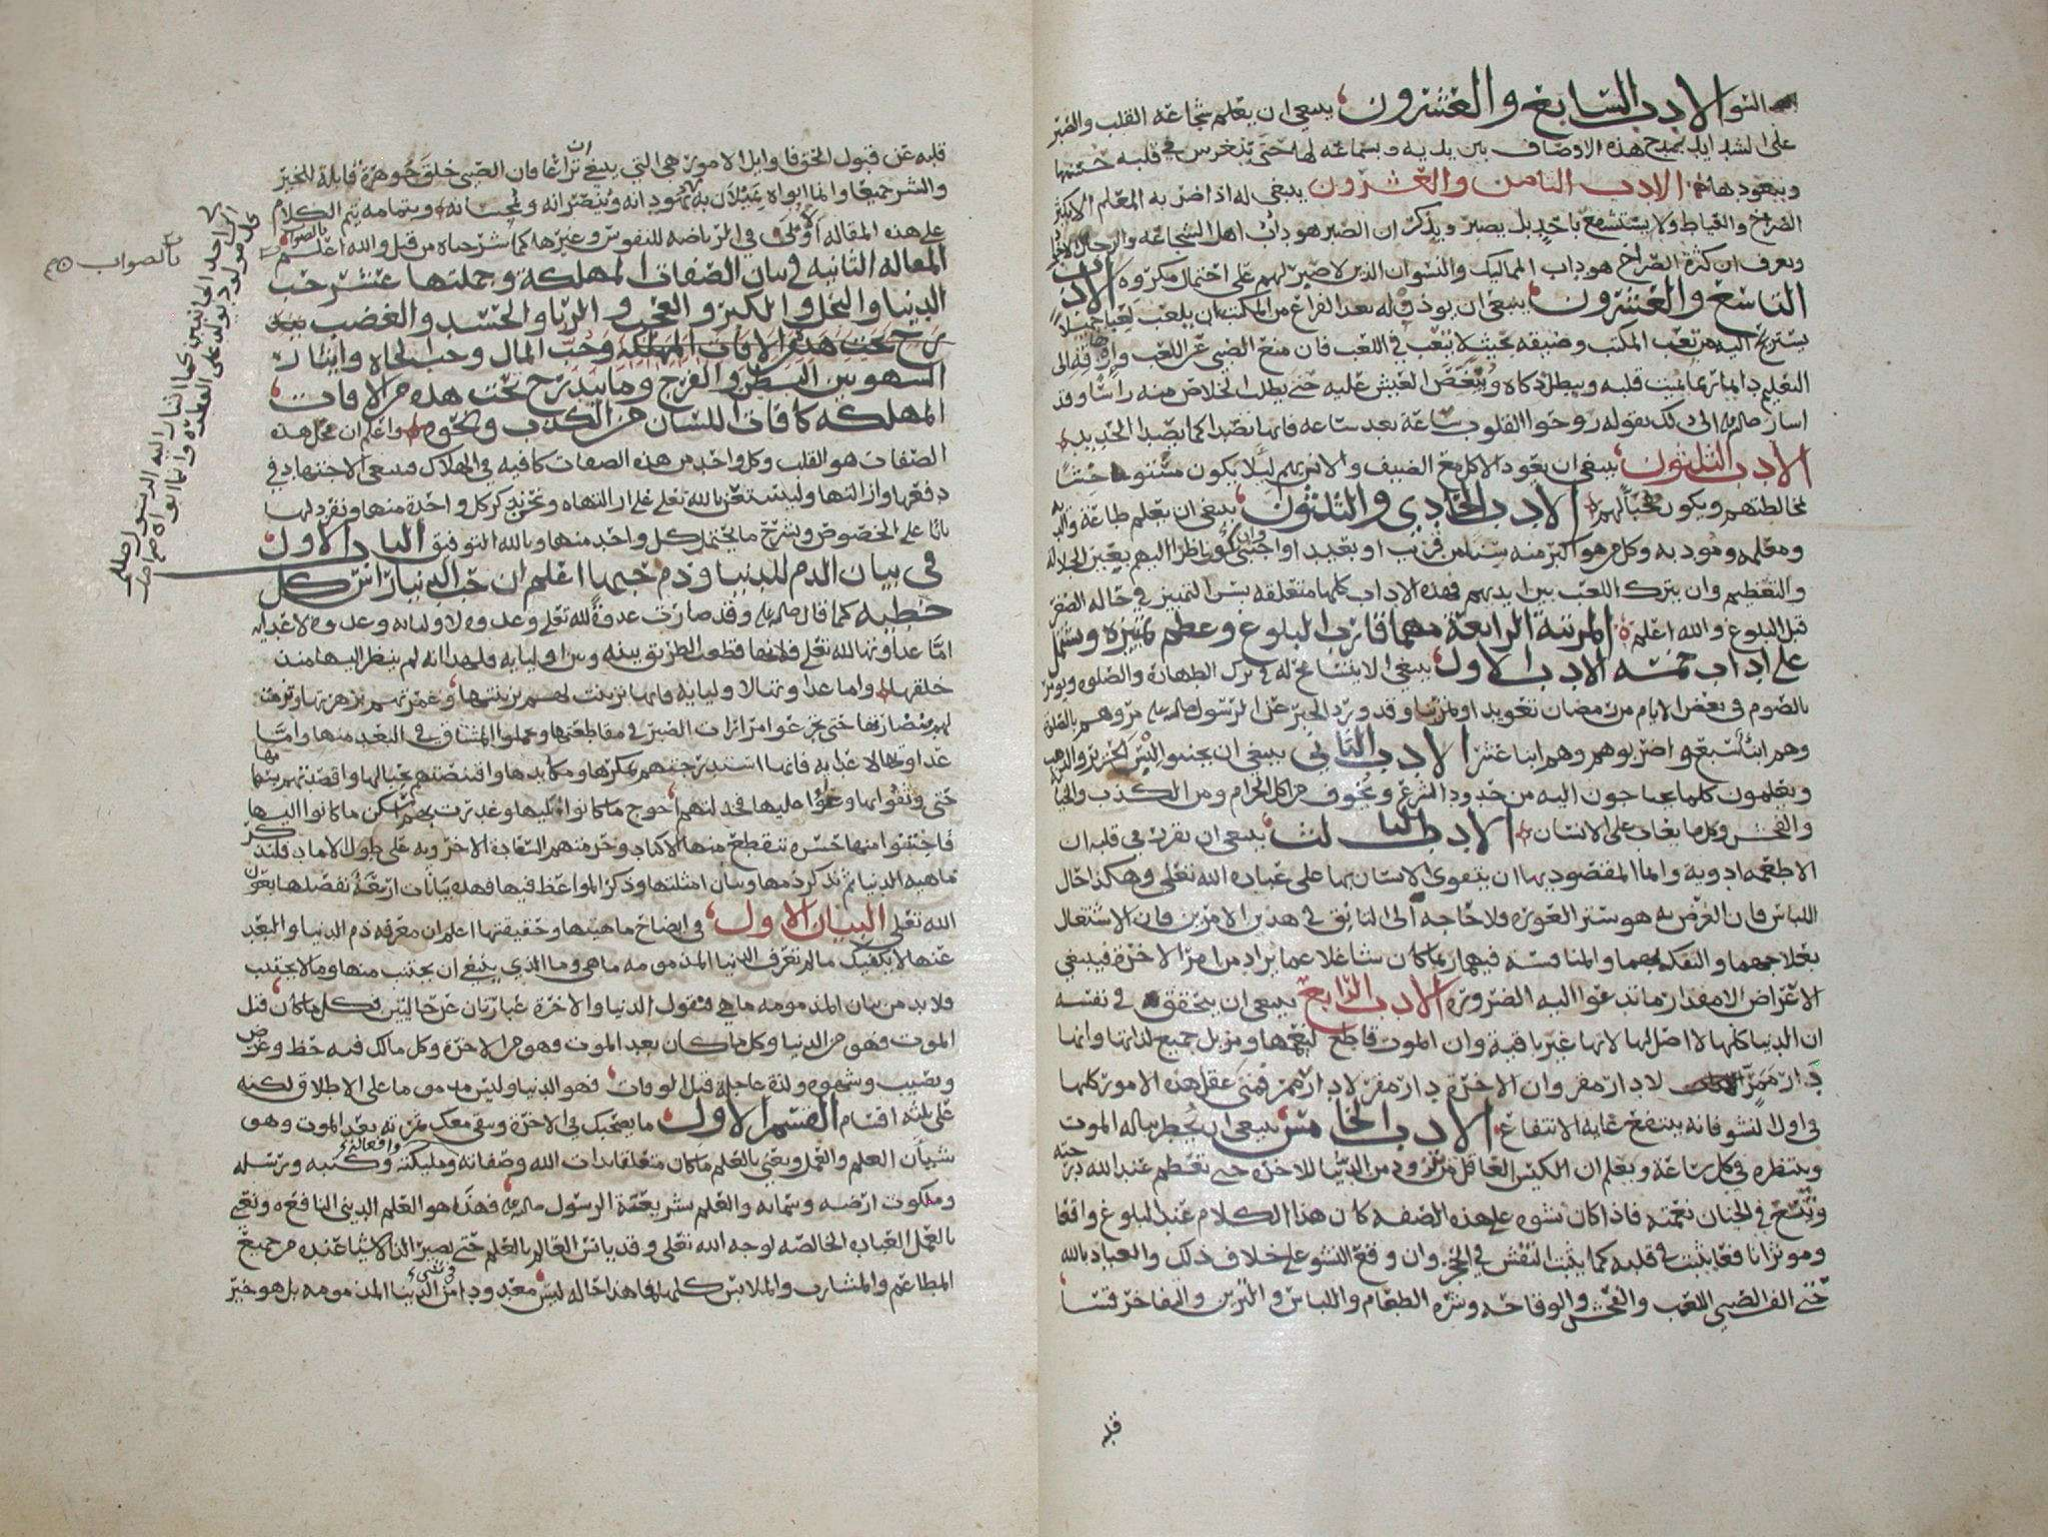 السو الادب السابع والعشرون ينبغي ان يعلم شجاعة القلب والصبر
على الشدايد بمدح هذه الاوصاف بين يديه وبسماعه لها حتى تنغرس في قلبه
ويتعود هما الادب الثامن والعشرون ينبغي له اذا ضربه المعلم الا يكثر
الصراخ والعياط ولا يستشفع باحد بل يصبر ويذكر ان الصبر هو داب اهل الشجاعة والرجال
ويعرف ان كثرة الصراخ هو داب المماليك والنسوان الذين لا صبر لهم على احتمال مكروه الادب
التاسع والعشرون ينبغي ان يوذن له بعد الفراغ من المكتب ان يلعب لعبا جميلا
يستريح اليه من تعب المكتب وضيقه بحيث لا يتعب في اللعب فان منع الصبي عن اللعب وارهاقه الى
التعليم دايما ربما يميت قلبه ويبطل ذكاه وينغص العيش عليه حتى يطلب الخلاص منه راسا وقد
اشار صلم الى ذلك بقوله روحوا القلوب ساعة بعد ساعة فانها تصدا كما يصدا الحديد
الادب الثلثون ينبغي ان يعود الاكل مع الضيف والانس بهم ليلا يكون مستوحشا
لمخالطتهم ويكون محبا لهم الادب الحادي والثلثون ينبغي ان يعلم طاعة والديه
ومعلمه ومودبه وكل من هو اكبر منه سنا من قريب او بعيد او اجنبي وان يكون ناظرا اليهم بعين الجلالة
والتعظيم وان يترك اللعب بين ايديهم فهذه الاداب كلها متعلقة بسن التمييز في حالة الصغر
قبل البلوغ والله اعلم المرتبة الرابعة مهما قارب البلوغ وعظم تمييزه وتشتمل
على اداب خمسة الادب الاول ينبغي الا يتسامح له في ترك الطهارة والصلوة ويومر
بالصوم في بعض الايام من رمضان تعويدا وتمرنا وقد ورد الخبر عن الرسول صلم مروهم بالصلوة
وهم ابنا سبع واضربوهم وهم ابنا عشر الادب الثاني ينبغي ان يجنبوا لبس الحرير والذهب
ويعلمون كلما يحتاجون اليه من حدود الشرع ويخوف من اكل الحرام ومن الكذب والخيانة
والفحش وكل ما يعاب على الانسان الادب الثالث ينبغي ان تقرر في قلبه ان
الاطعمة ادوية وانما المقصود بها ان يتقوى الانسان بها على عبادة الله تعلى وهكذا حال
اللباس فان الغرض به هو ستر العورة فلا حاجة الى التانق في هذين الامرين فان الاشتغال
بعلاجهما والتفكه بهما والمنافسة فيهما ربما كان شاغلا عما يراد من امر الاخرة فينبغي
الاعراض الا مقدار ما تدعوا اليه الضرورة الادب الرابع ينبغي ان يتحقق في نفسه
ان الدنيا كلها لا اصل لها لانها غير باقية وان الموت قاطع لنعيمها ومزيل جميع لذاتها وانها
دار ممر لا دار مقر وان الاخرة دار مقر لا دار ممر فمتى عقل هذه الامور كلها
في اول النشو فانه ينتفع غاية الانتفاع الادب الخامس ينبغي ان يخطر بباله الموت
وينتظره في كل ساعة ويعلم ان الكيس العاقل من تزود من الدنيا للاخرة حتى تعظم عند الله درجته
ويتسع في الجنان نعمته فاذا كان نشوه على هذه الصفة كان هذا الكلام عند البلوغ واقعا
وموثرا نافعا يثبت في قلبه كما يثبت النقش في الحجر وان وقع النشو على خلاف ذلك والعياذ بالله
حتى الف الصبي اللعب والفحش والوقاحة وشره الطعام واللباس والتزين والتفاخر قسا
قلبه
قلبه عن قبول الحق فاوايل الامور هي التي ينبغي ان تراعا فان الصبي خلق جوهرة قابلة للخير
والشر جميعا وانما ابواه يميلان به يهودانه وينصرانه ويمجسانه وبتمامه يتم الكلام
على هذه المقالة الاولى في الرياضة للنفوس وغيرها كما شرحناه من قبل والله اعلم بالصواب
المقالة الثانية في بيان الصفات المهلكة وجملتها عشر حب
الدنيا والبخل والكبر والعجب والريا والحسد والغضب
رج تحت هذه الافات المهلكة وحب المال وحب الجاه وايثار
الشهوتين البطن والفرج وما يندرج تحت هذه من الافات
المهلكة كافات اللسان من الكذب ونحوه واعلم ان محل هذه
الصفات هو القلب وكل واحد من هذه الصفات كافية في الهلاك فينبغي الاجتهاد في
دفعها وازالتها وليستعن بالله تعلى على ازالتها ونحن نذكر كل واحدة منها ونفرد لها
بابا على الخصوص ونشرح ما يحتمل كل واحد منها وبالله التوفيق الباب الاول
في بيان الذم للدنيا وذم حبها اعلم ان حب الدنيا راس كل
خطية كما قال صلم وقد صارت عدوة لله تعلى وعدوة لاوليايه وعدوة لاعدايه
اما عداوتها لله تعلى فلانها قطعت الطريق بينه وبين اوليايه فلهذا انه لم ينظر اليها منذ
خلقها واما عداوتها لاوليايه فانها تزينت لهم بزينتها وغمرتهم بزهرتها
حتى تجرعوا مرارات الصبر في مقاطعتها وحملوا المشاق في البعد منها واما
عداوتها لاعدايه فانها استدرجتهم بمكرها ومكايدها واقتنصتهم بحبالها
حتى وثقوا بها وعولوا عليها فخذلتهم احوج ما كانوا اليها وغدرت بهم اسكن ما كانوا اليها
فاجتنوا منها حسرة تنقطع منها الاكباد وحرمتهم السعادة الاخروية على طول الاماد فلنذكر
ماهية الدنيا ثم نذكر ذمها وبيان امثلتها وذكر المواعظ فيها فهذه بيانات اربعة نفصلها بعون
الله تعلى البيان الاول في ايضاح ماهيتها وحقيقتها اعلم ان معرفة ذم الدنيا والبعد
عنها لا يكفيك ما لم تعرف الدنيا المذمومة ما هي وما الذي ينبغي ان يجتنب منها وما لا يجتنب
فلا بد من بيان المذمومة ما هي فنقول الدنيا والاخرة عبارتان عن حالتين فكل ما كان قبل
الموت فهو من الدنيا وكل ما كان بعد الموت فهو من الاخرة وكل ما لك فيه حظ وغرض
ونصيب وشهوة ولذة عاجلة قبل الوفات فهو الدنيا وليس مذموما على الاطلاق لكنه
على ثلثة اقسام القسم الاول ما يصحبك في الاخرة ويبقى معك ثمرته بعد الموت وهو
شيان العلم والعمل ونعني بالعلم ما كان متعلقا بذات الله وصفاته وافعاله ومليكته وكتبه ورسله
وملكوت ارضه وسمائه والعلم بشريعة الرسول صلم فهذا هو العلم الديني النافع ونعني
بالعمل العبادة الخالصة لوجه الله تعلى وقد يانس العالم بالعلم حتى يصير الذ الاشيا عنده من جميع
المطاعم والمشارب والملابس كلها فما هذا حاله ليس معدودا من الدنيا المذمومة في شيء بل هو خير
بالصواب
كل مولود يولد على الفطرة وانما ابواه